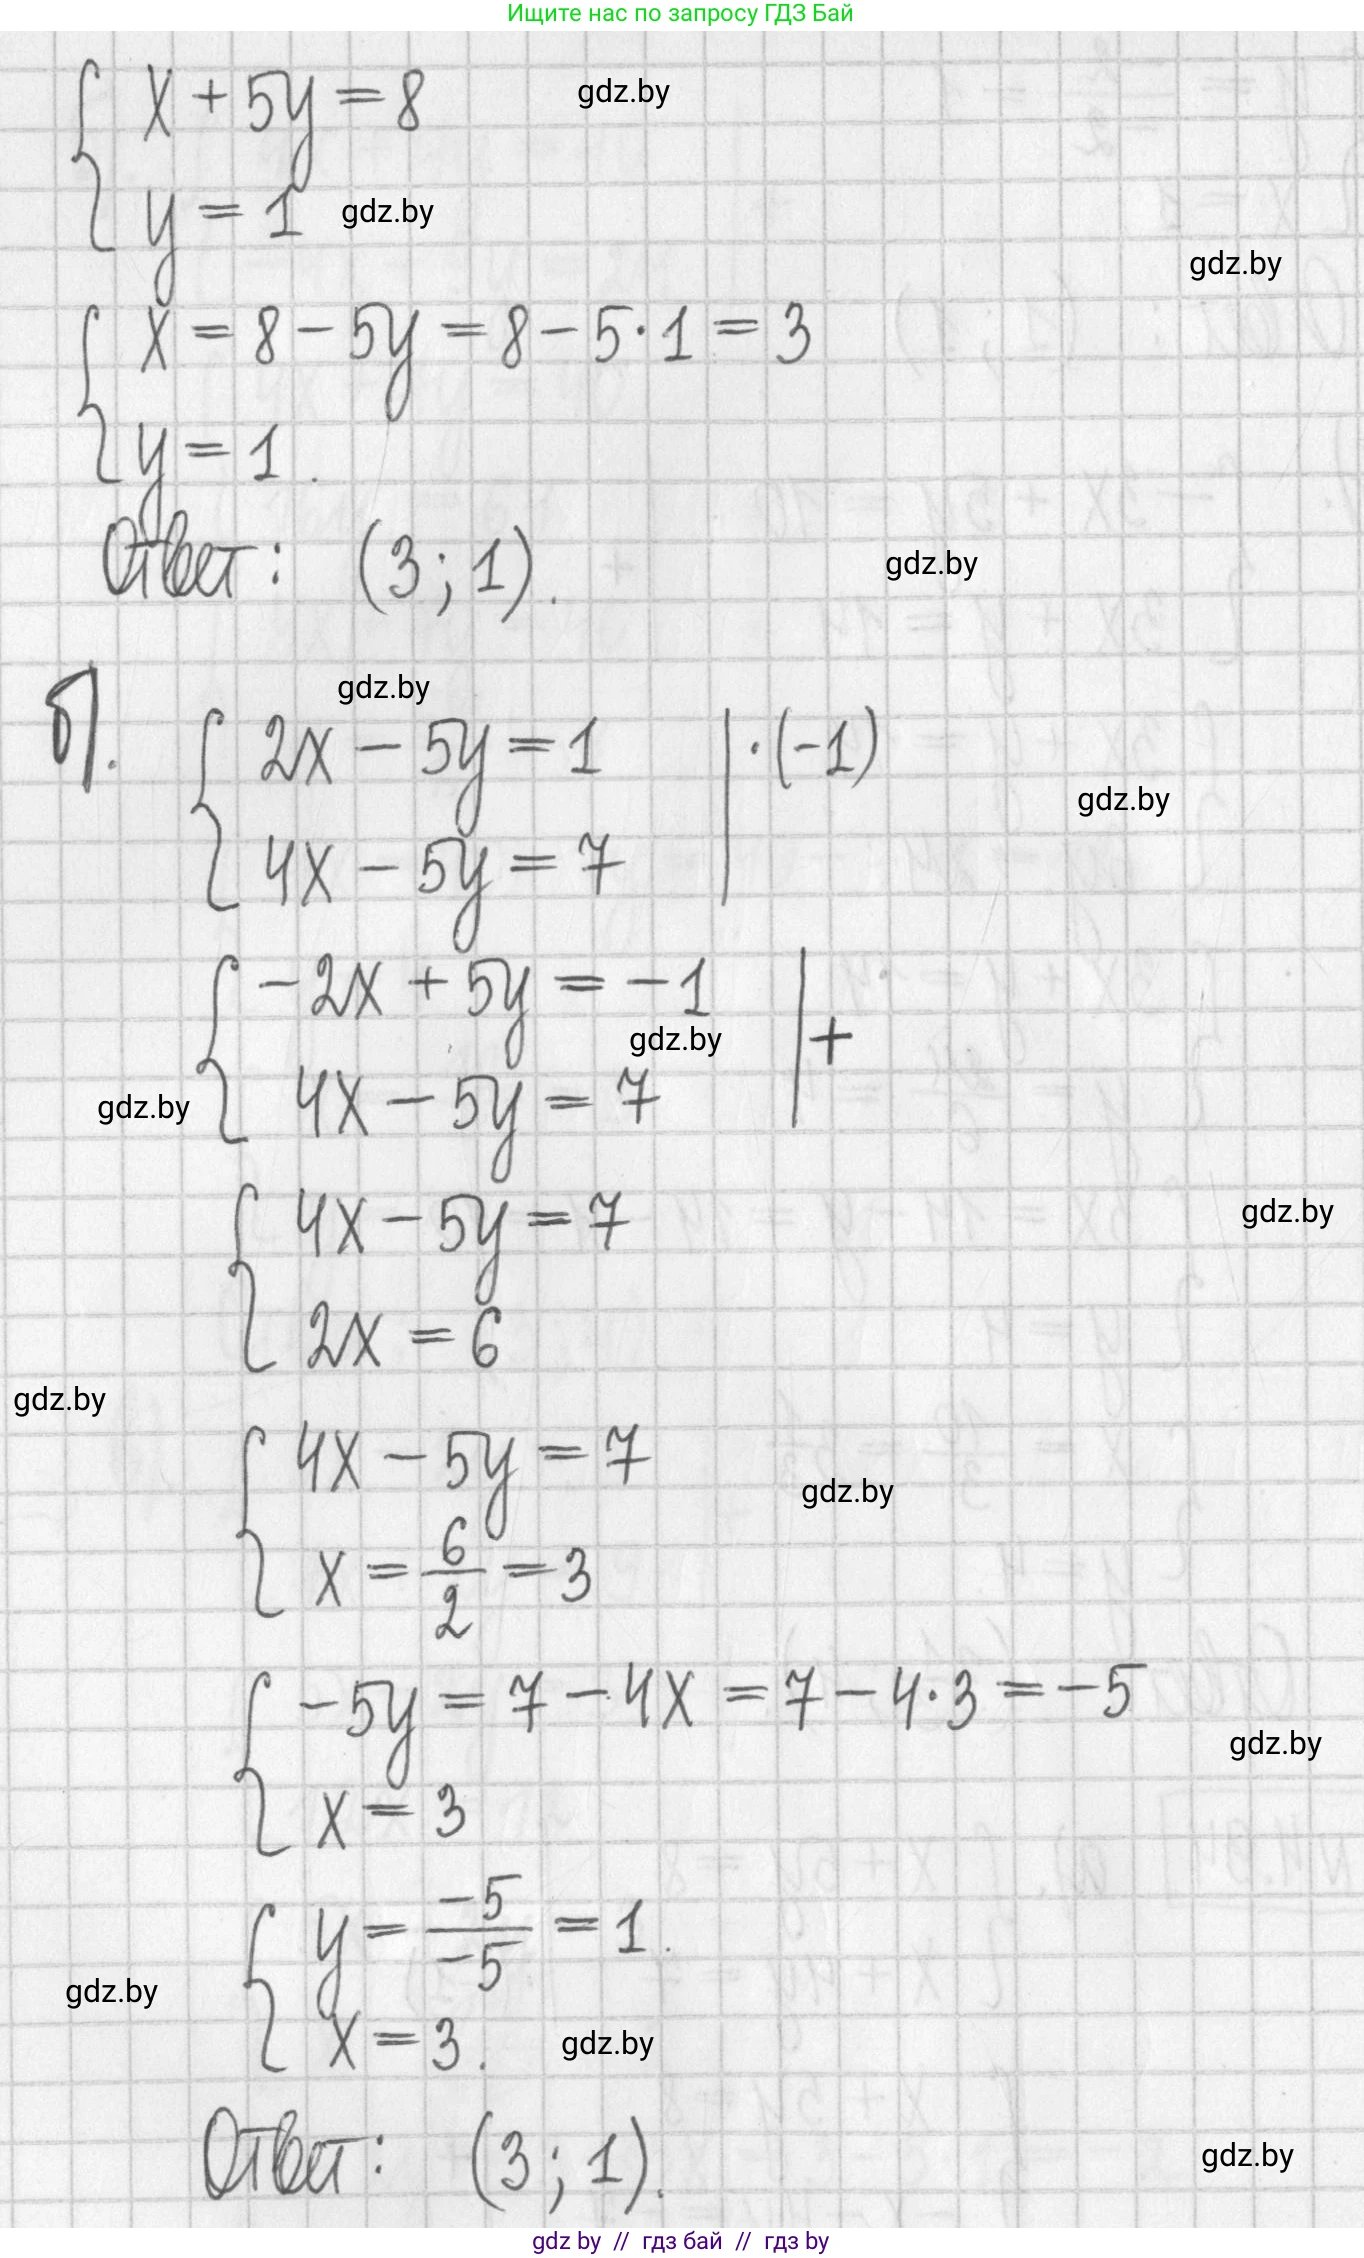 Ищите нас по запросу ГДЗ Бай
x + 5y = 8
gdz.by
y = 1
gdz.by
gdz.by
x = 8 − 5y = 8 − 5·1 = 3
y = 1.
Ответ: (3; 1).
gdz.by
gdz.by
б). 2x − 5y = 1 | ·(−1)
gdz.by
4x − 5y = 7
−2x + 5y = −1 | +
gdz.by
4x − 5y = 7
gdz.by
4x − 5y = 7
gdz.by
2x = 6
gdz.by
4x − 5y = 7
gdz.by
x = 6/2 = 3
−5y = 7 − 4x = 7 − 4·3 = −5
gdz.by
x = 3
y = −5/−5 = 1.
gdz.by
x = 3.
gdz.by
Ответ: (3; 1).
gdz.by
gdz by // гдз бай // гдз by